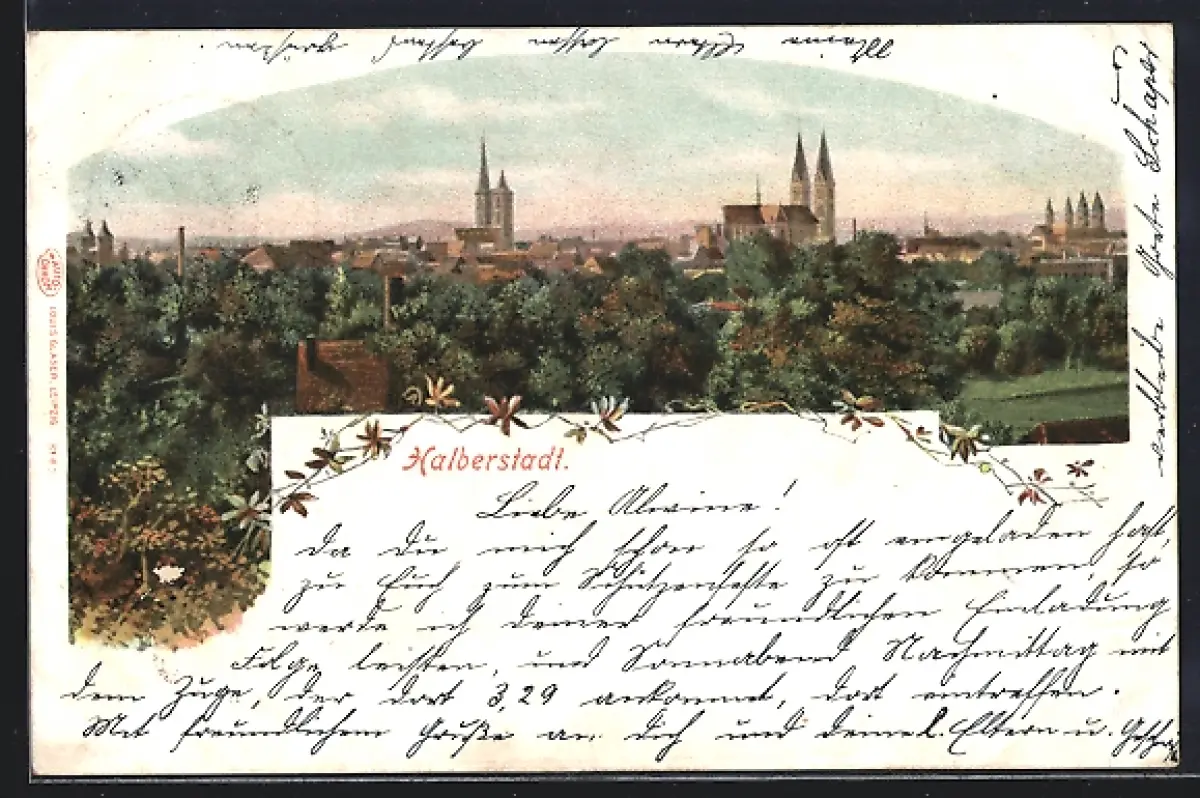 Halberstadt.
Liebe Alwine!
Da Du mich schon so oft eingeladen hast,
zu Euch zum Schützenfeste zu kommen, so
werde ich deiner freundlichen Einladung
Folge leisten, und Sonnabend Nachmittag mit
dem Zuge, der dort 3,29 ankommt, dort eintreffen.
Mit freundlichen Grüße an dich und deine l. Eltern u. Geschw.
Grete Schaper
Meine Eltern lassen bestens grüßen.
AUTOCHROM
LOUIS GLASER, LEIPZIG